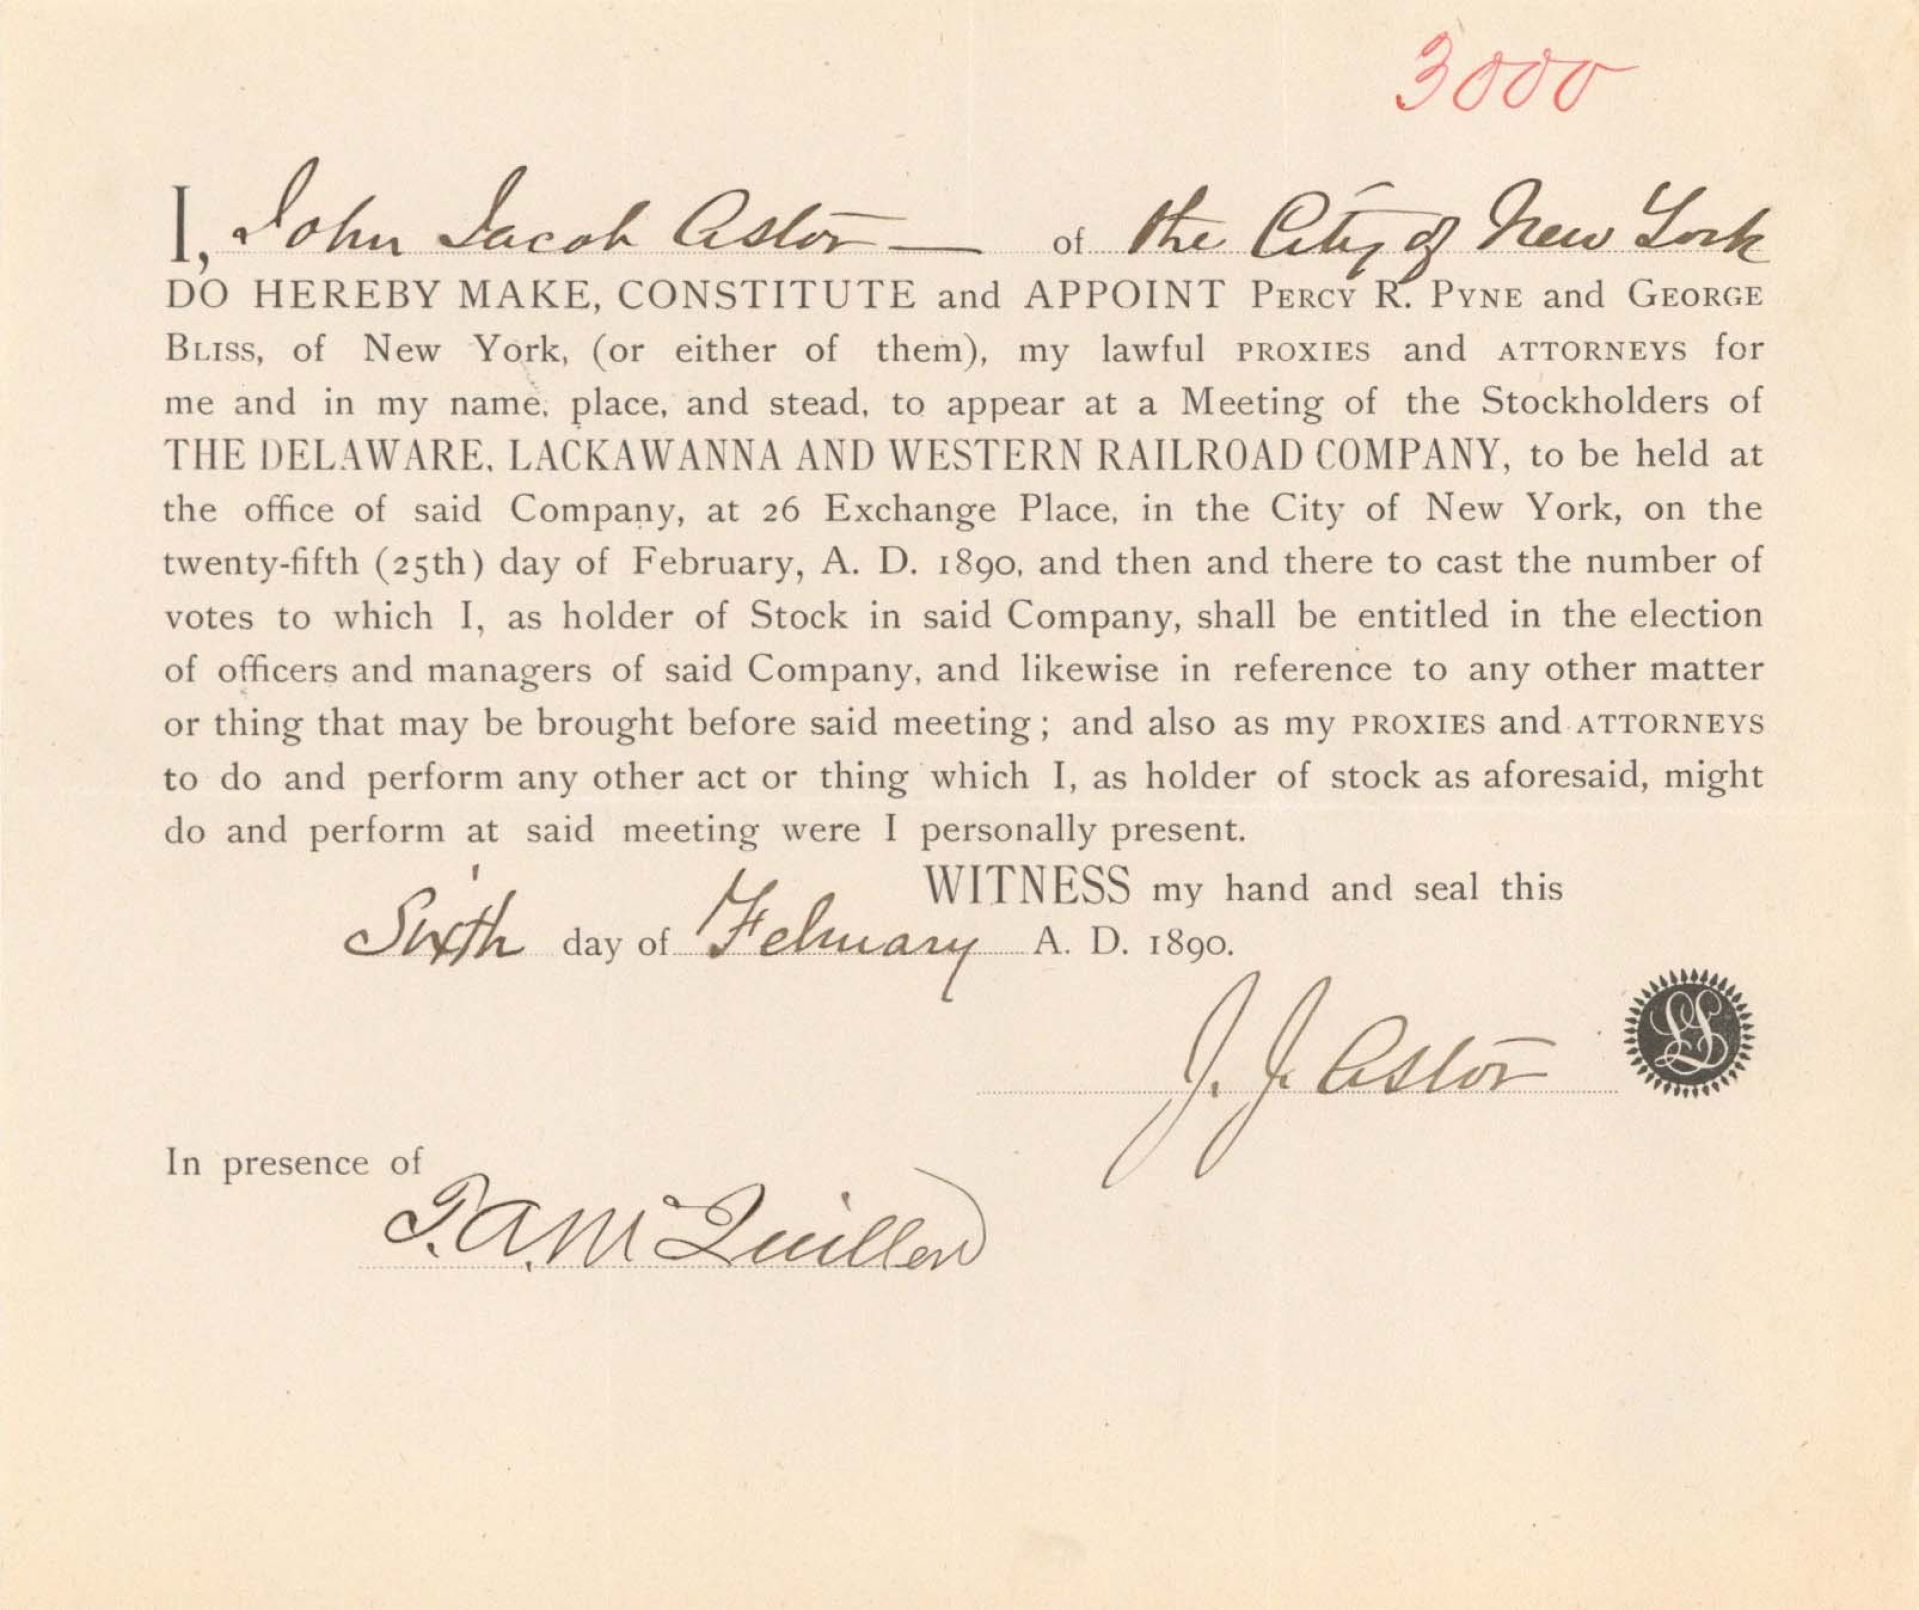 3000
I, John Jacob Astor — of the City of New York
DO HEREBY MAKE, CONSTITUTE and APPOINT PERCY R. PYNE and GEORGE
BLISS, of New York, (or either of them), my lawful PROXIES and ATTORNEYS for
me and in my name, place, and stead, to appear at a Meeting of the Stockholders of
THE DELAWARE, LACKAWANNA AND WESTERN RAILROAD COMPANY, to be held at
the office of said Company, at 26 Exchange Place, in the City of New York, on the
twenty-fifth (25th) day of February, A. D. 1890, and then and there to cast the number of
votes to which I, as holder of Stock in said Company, shall be entitled in the election
of officers and managers of said Company, and likewise in reference to any other matter
or thing that may be brought before said meeting; and also as my PROXIES and ATTORNEYS
to do and perform any other act or thing which I, as holder of stock as aforesaid, might
do and perform at said meeting were I personally present.
WITNESS my hand and seal this
Sixth day of February A. D. 1890.
J. J. Astor
LS
In presence of
T. A. McQuillen